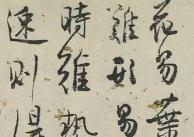 花易葉
難形易
時難執
速則得